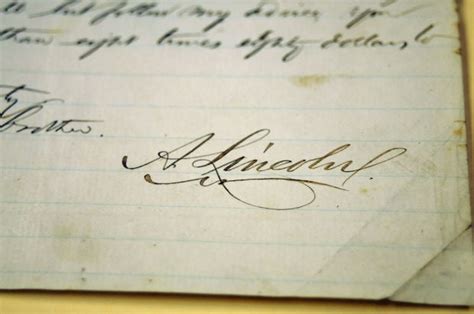 but follow my advice, you
than eight times eighty dollars to
Brother.
A. Lincoln.